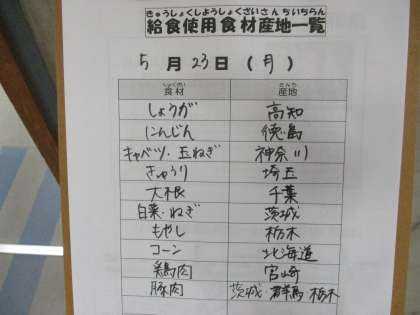 きゅうしょくしようしょくざいさんちいちらん
給食使用食材産地一覧
5月23日(月)
しょくざい さんち
食材 産地
しょうが 高知
にんじん 徳島
キャベツ・玉ねぎ 神奈川
きゅうり 埼玉
大根 千葉
白菜・ねぎ 茨城
もやし 栃木
コーン 北海道
鶏肉 宮崎
豚肉 茨城・群馬・栃木